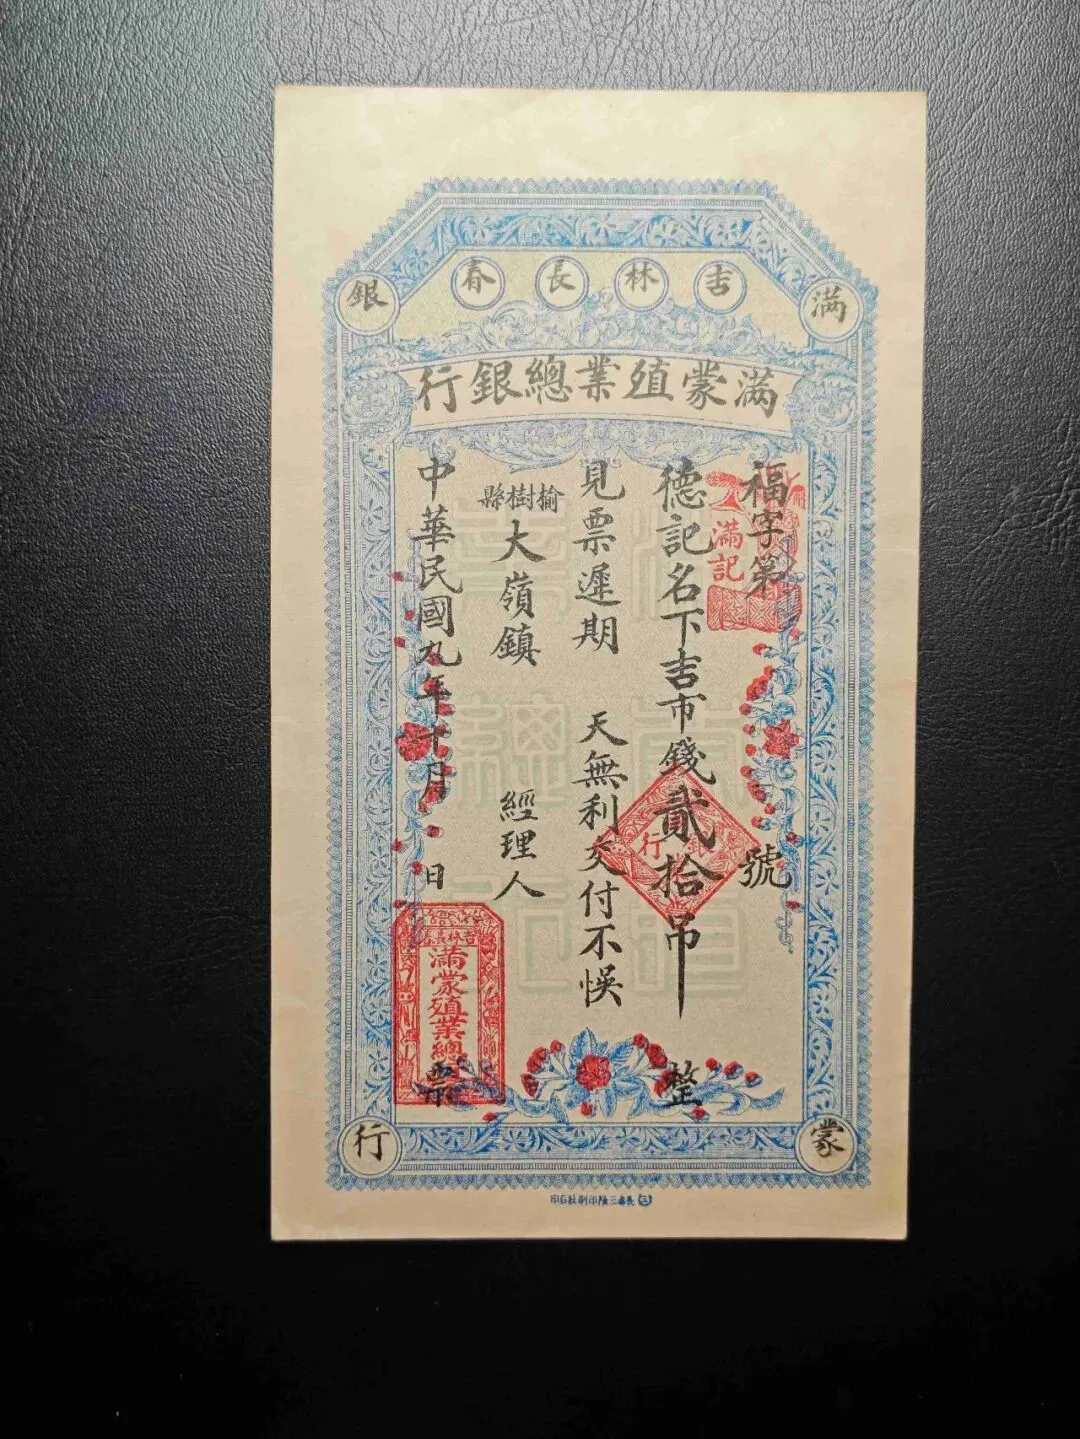 吉林長春
滿蒙銀行
滿蒙殖業總銀行
福字第 號
滿記
德記名下吉市錢貳拾吊 整
銀行
見票遲期 天無利交付不悞
榆樹縣
大嶺鎮 經理人
中華民國九年十月 日 票
吉林長春
滿蒙殖業總
長春三隆印刷社石印